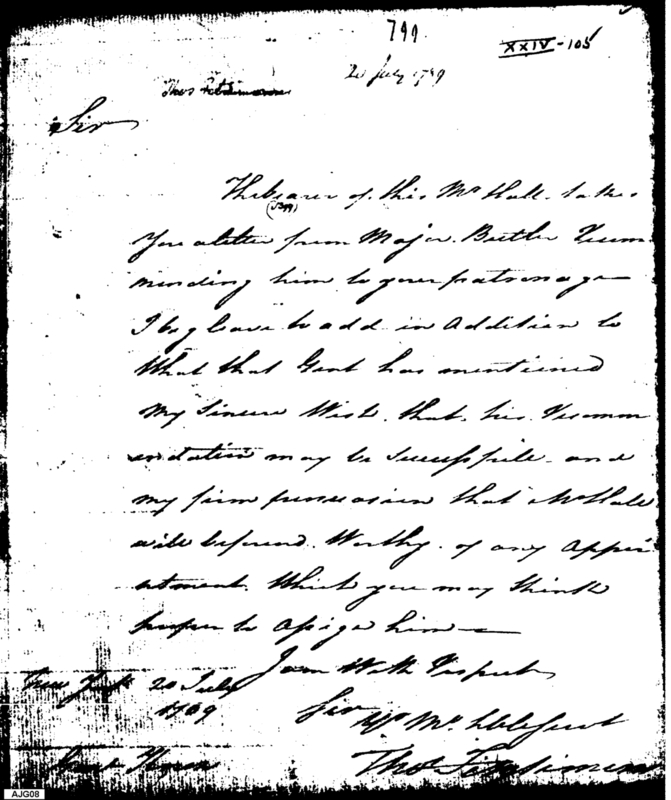 799.
XXIV-105
20 July 1789
Thos Fitzsimons
Sir
The bearer of this Mr Hall takes
(J Hall)
You a letter from Major Butler Recom
mending him to your patronage
I beg leave to add in addition to
What that Gent has mentioned
My Sincere Wish that his Recomm
endation may be Successful and
my firm persuasion that Mr Hall
will be found Worthy of any Appoi
ntment Which you may think
proper to Assign him—
I am With Respect
New York 20 July
1789
Sir
Yr Mo. Obt Servt
Thos Fitzsimons
AJG08